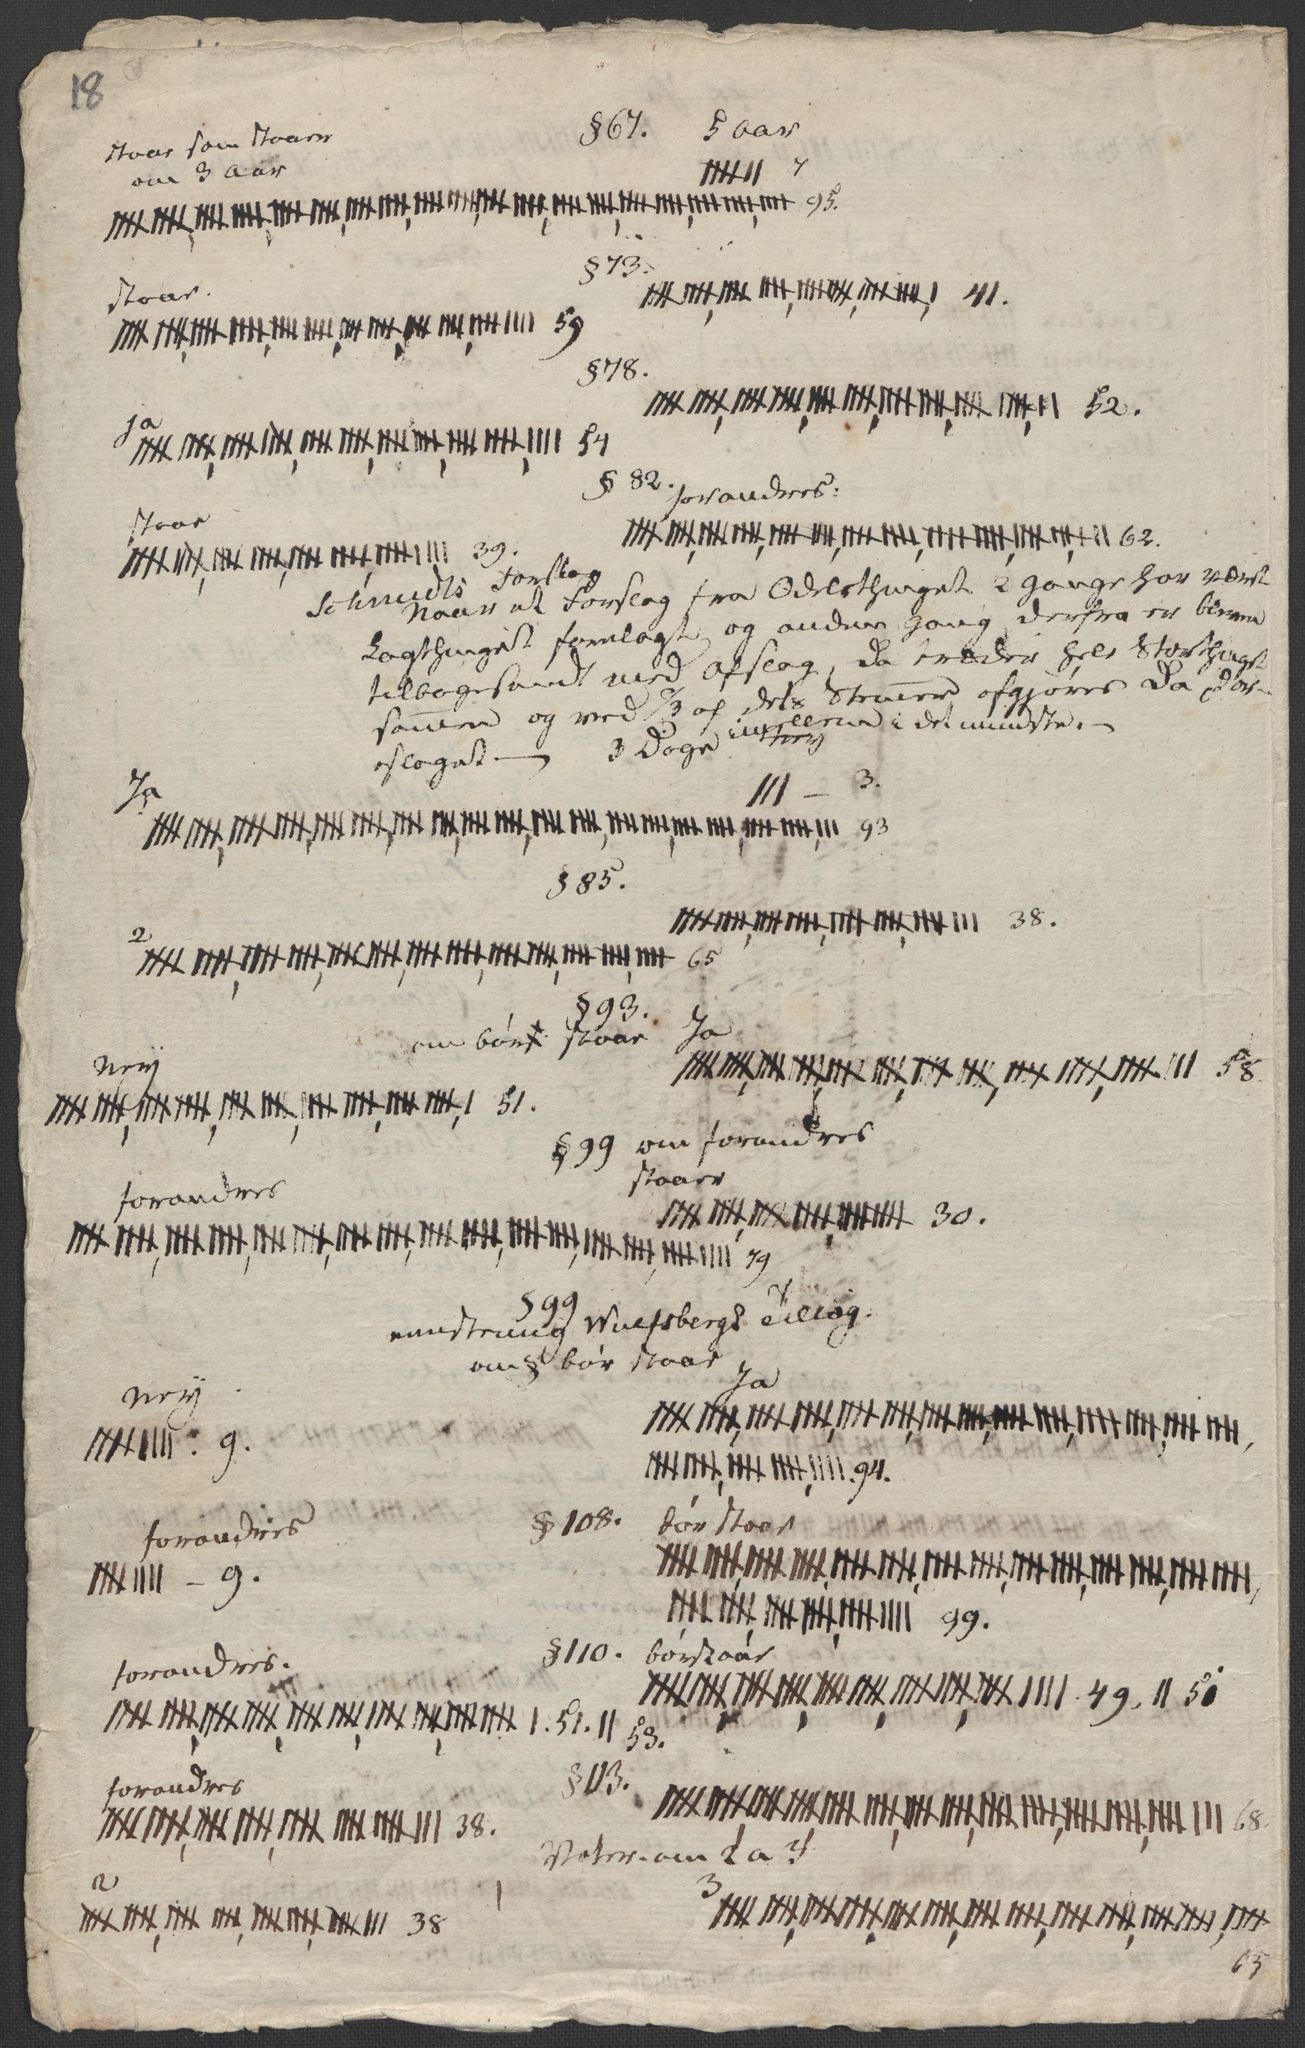 18
§67. 5 aar
staae som staaer
om 3 aar
7
95.
§73.
staae.
41.
59
§78.
52.
ja
54
§ 82. forandres:
staae
62.
39.
Schmidts Forslag
Naar et Forslag fra Odelsthinget 2 gange har været
Lagthinget forelagt og anden gang derfra er bleven
tilbagesendt med Afslag, da træder hele Storthinget
sammen og med 2/3 af dets Stemmer afgjøres da For-
slaget — 3 Dage imellem i det mindste. —
Ney
Ja
3.
93
§85.
38.
2
65
§93.
om bør staae Ja
Ney
58
51.
§99 om forandres
staaer
forandres
30.
79
§99
Wulfsbergs Tillæg.
om § bør staae
Ney Ja
9.
94.
forandres §108. bør staae
– 9.
99.
forandres. §110. bør staae
49. II 51
1. 51. II 53.
forandres §113.
38. 68.
2 3
38
65